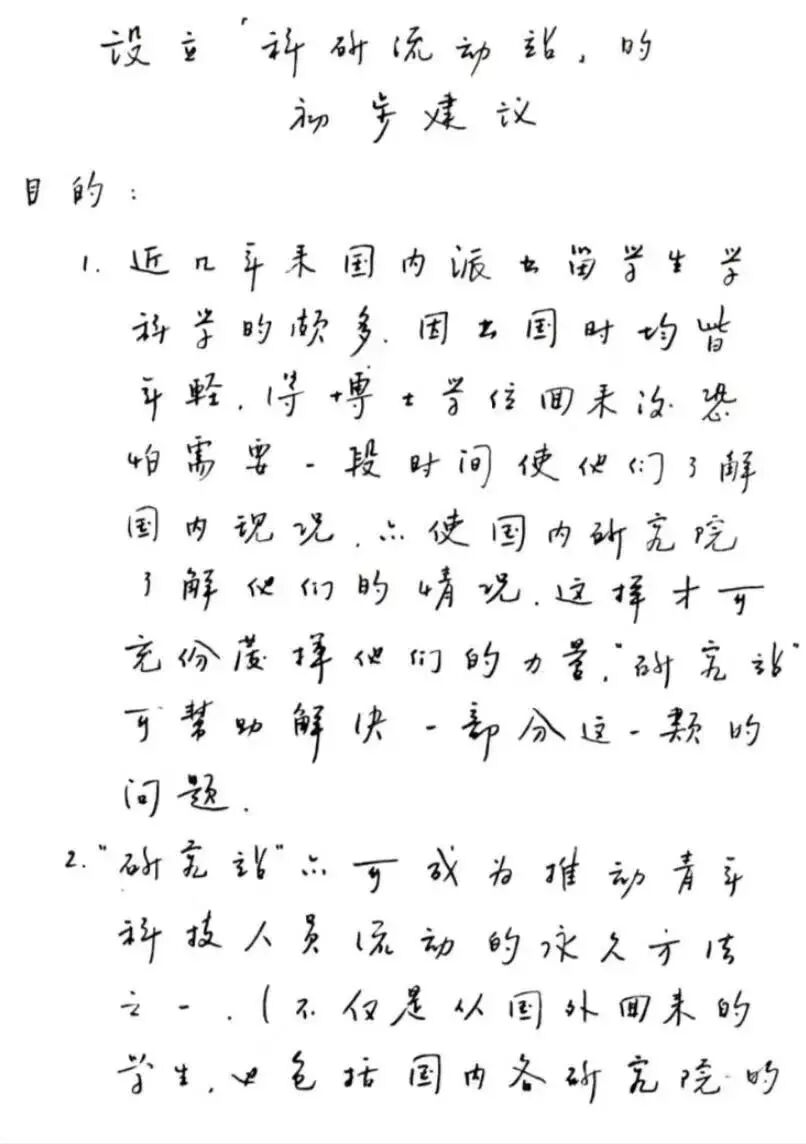 设立「科研流动站」的
初步建议
目的：
1. 近几年来国内派出留学生学
科学的颇多. 因出国时均皆
年轻, 得博士学位回来后恐
怕需要一段时间使他们了解
国内现况, 亦使国内研究院
了解他们的情况. 这样才可
充份发挥他们的力量, "研究站"
可帮助解决一部分这一类的
问题.
2. "研究站"亦可成为推动青年
科技人员流动的永久方法
之一. (不仅是从国外回来的
学生, 也包括国内各研究院的